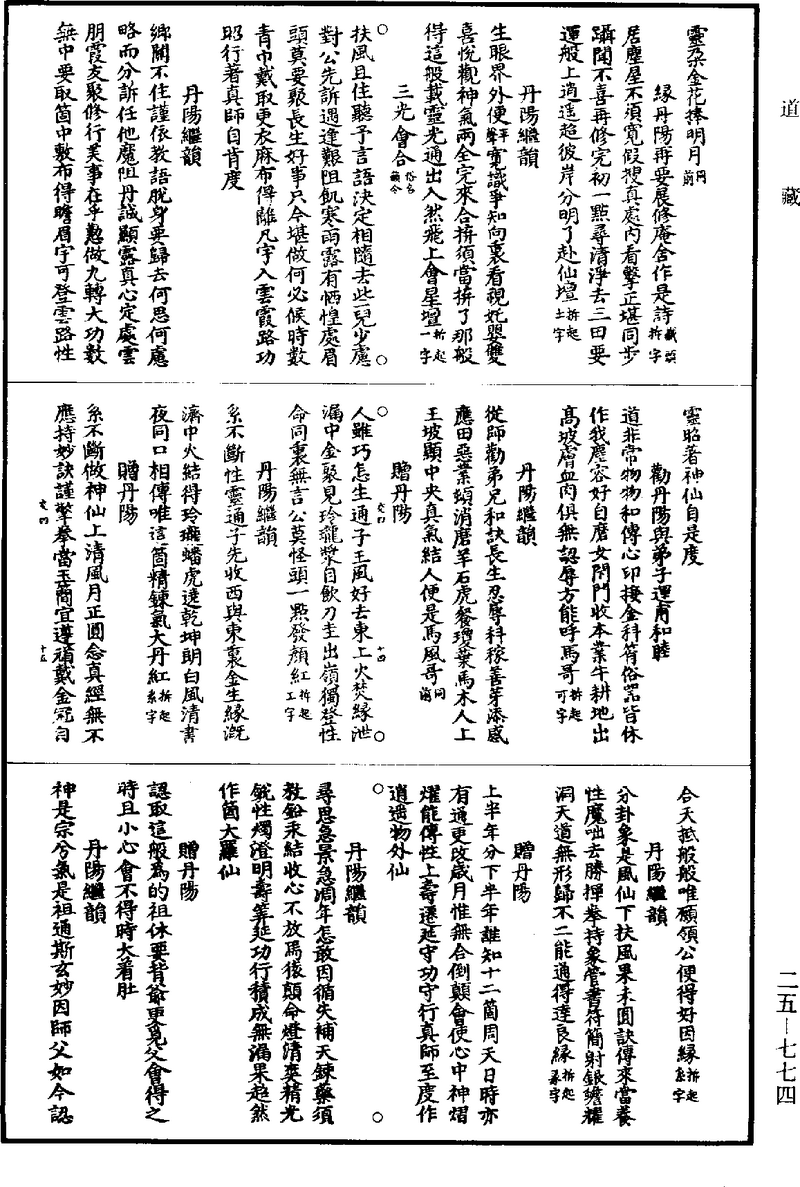 道藏
靈朶金花捧明月同前
緣丹陽再要展修庵舍作是詩藏頭拆字
居塵屋不須寬假摉真處內看擊正堪同步
躡聞不喜再修完初一點尋清淨去三田要
運般上逍遥超彼岸分明了赴仙壇拆起土字
丹陽繼韻
生眼界外便寬識爭知向裏看視姹嬰雙
喜悅觀神氣兩全完來合拚須當拚了那般
得這般載靈光通出入然飛上會星壇拆起一字
三光會合俗名
扶風且住聽予言語決定相隨去些兒少慮
對公先訴遇逢艱阻飢寒雨露有恓惶處眉
頭莫要聚長生好事只今堪做何必候時數
青巾戴取更衣麻布得離凡宇入雲霞路功
昭行著真師自肯度
丹陽繼韻
鄉關不住謹依教語脫身要歸去何思何慮
略而分訴任他魔阻丹誠顯露真心定處雲
朋霞友聚修行美事在乎懃做九轉大功數
無中要取箇中敷布得瞻眉宇可登雲路性
靈昭著神仙自是度
勸丹陽與弟子運甫和睦
道非常物物和傳心印接金科筲俗器皆休
作我塵容好自磨女閉門收本業牛耕地出
高坡膚血肉俱無認辱方能呼馬哥拆起可字
丹陽繼韻
從師勸弟兄和訣長生忍辱科稼善芽添感
應田惡業頓消磨羊石虎餐瓊葉馬木人上
王坡顯中央真氣結人便是馬風哥同前
贈丹陽
人雖巧怎生通子王風好去東上火焚緣泄
漏中金聚見玲瓏漿自飲刀圭出嶺獨登性
命同裏無言公莫怪頭一點發顏紅拆起工字
丹陽繼韻
系不斷性靈通子先收西與東裏金生緣溉
濟中火結得玲瓏蟠虎遶乾坤朗白風清書
夜同口相傳唯這箇精鍊氣大丹紅拆起系字
贈丹陽
系不斷做神仙上清風月正圓念真經無不
應持妙訣謹擎拳當玉簡宜遵禎戴金冠自
合天抵般般唯願領公便得好因緣拆起系字
丹陽繼韻
分卦象是風仙下扶風果未圓訣傳來當養
性魔咄去勝揮拳持象管書符簡射銀蟾耀
洞天道無形歸不二能通得達良緣拆起彖字
贈丹陽
上半年分下半年誰知十二箇周天日時亦
有通更改歲月惟無合倒顛會使心中神熠
燿能傳性上壽遷延守功守行真師至度作
逍遥物外仙
丹陽繼韻
尋思急景急凋年怎敢因循失補天鍊藥須
教鉛汞結收心不放馬猿顛命燈清爽精光
銳性燭澄明壽筭延功行積成無漏果超然
作箇大羅仙
贈丹陽
認取這般為的祖休要背爺更覓父會得之
時且小心會不得時大着肚
丹陽繼韻
神是宗兮氣是祖通斯玄妙因師父如今認
二五—七七四